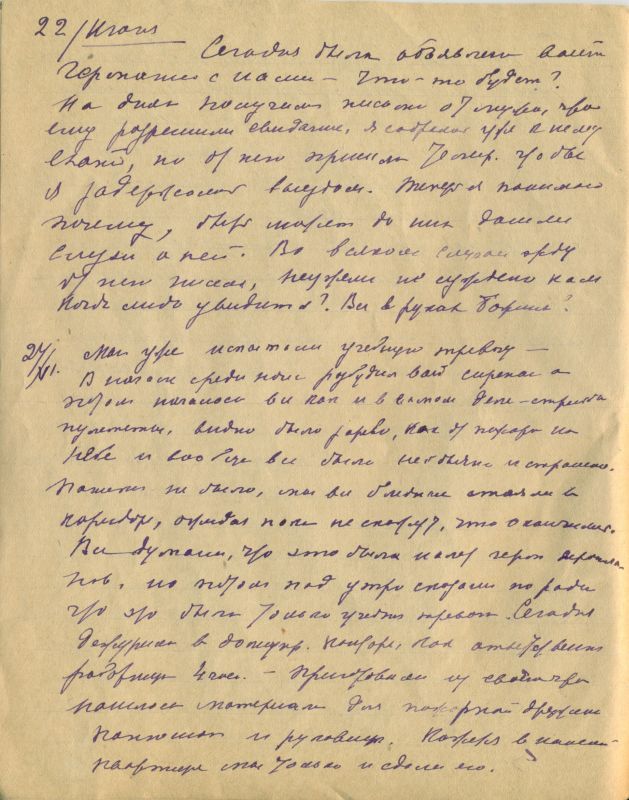 22/Июня
Сегодня была объявлена война
Германии с нами – что-то будет?
На днях получила письмо от мужа, что
ему разрешили свидание, я собралась уже к нему
ехать, но от него пришла телегр. чтобы
я задержалась выездом. Теперь я понимаю
почему, быть может до них дошли
слухи о ней. Во всяком случае жду
от него писем, неужели не суждено нам
когда либо увидится? Все в руках Божьих?
24/VI. Мы уже испытали учебную тревогу –
В ночь среди ночи разбудил вой сирены а
потом началось все как и в самом деле – стрельба
пулеметы, видно было зарево, как от пожара на
небе и вообще все было необычно и страшно.
Паники не было, мы все бледные стояли в
коридоре, ожидая пока не скажут, что окончилось.
Все думали, что это был налет герм аэропла-
нов, но потом под утро сказали по радио
что это была только учебная тревога. Сегодня
дежурила в домоупр. конторе, как ответственная
работница 4 часа. –
нашлось материала для пожарной дружины
капюшон и рукавицы. Кажется в нашей
квартире мы только и сдали его.